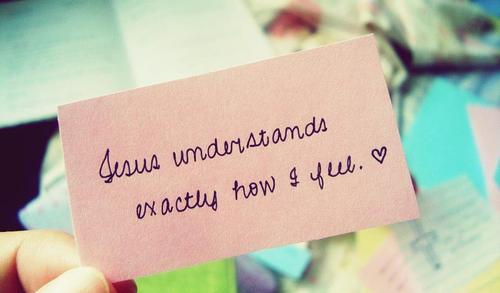 Jesus understands
exactly how I feel. ♡